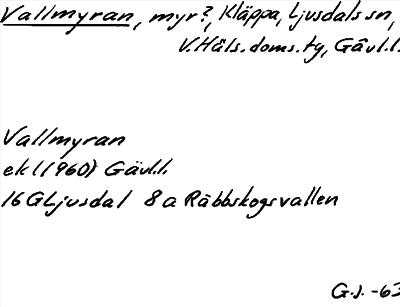 Vallmyran, myr?, Kläppa, Ljusdals sn,
V.Häls.doms.ty, Gävl.l.
Vallmyran
ekl(1960) Gävl.l.
16GLjusdal 8a Räbbskogsvallen
G.J. -63